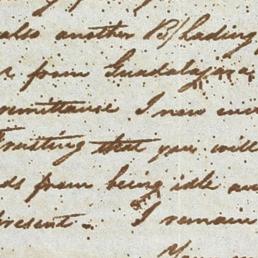 also another B/Lading
from Guadalajara
remittance I now
Trusting that you will
from being idle
present - I remain